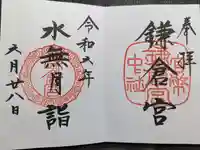 奉拝
鎌倉宮
令和六年
水無月詣
六月廿八日